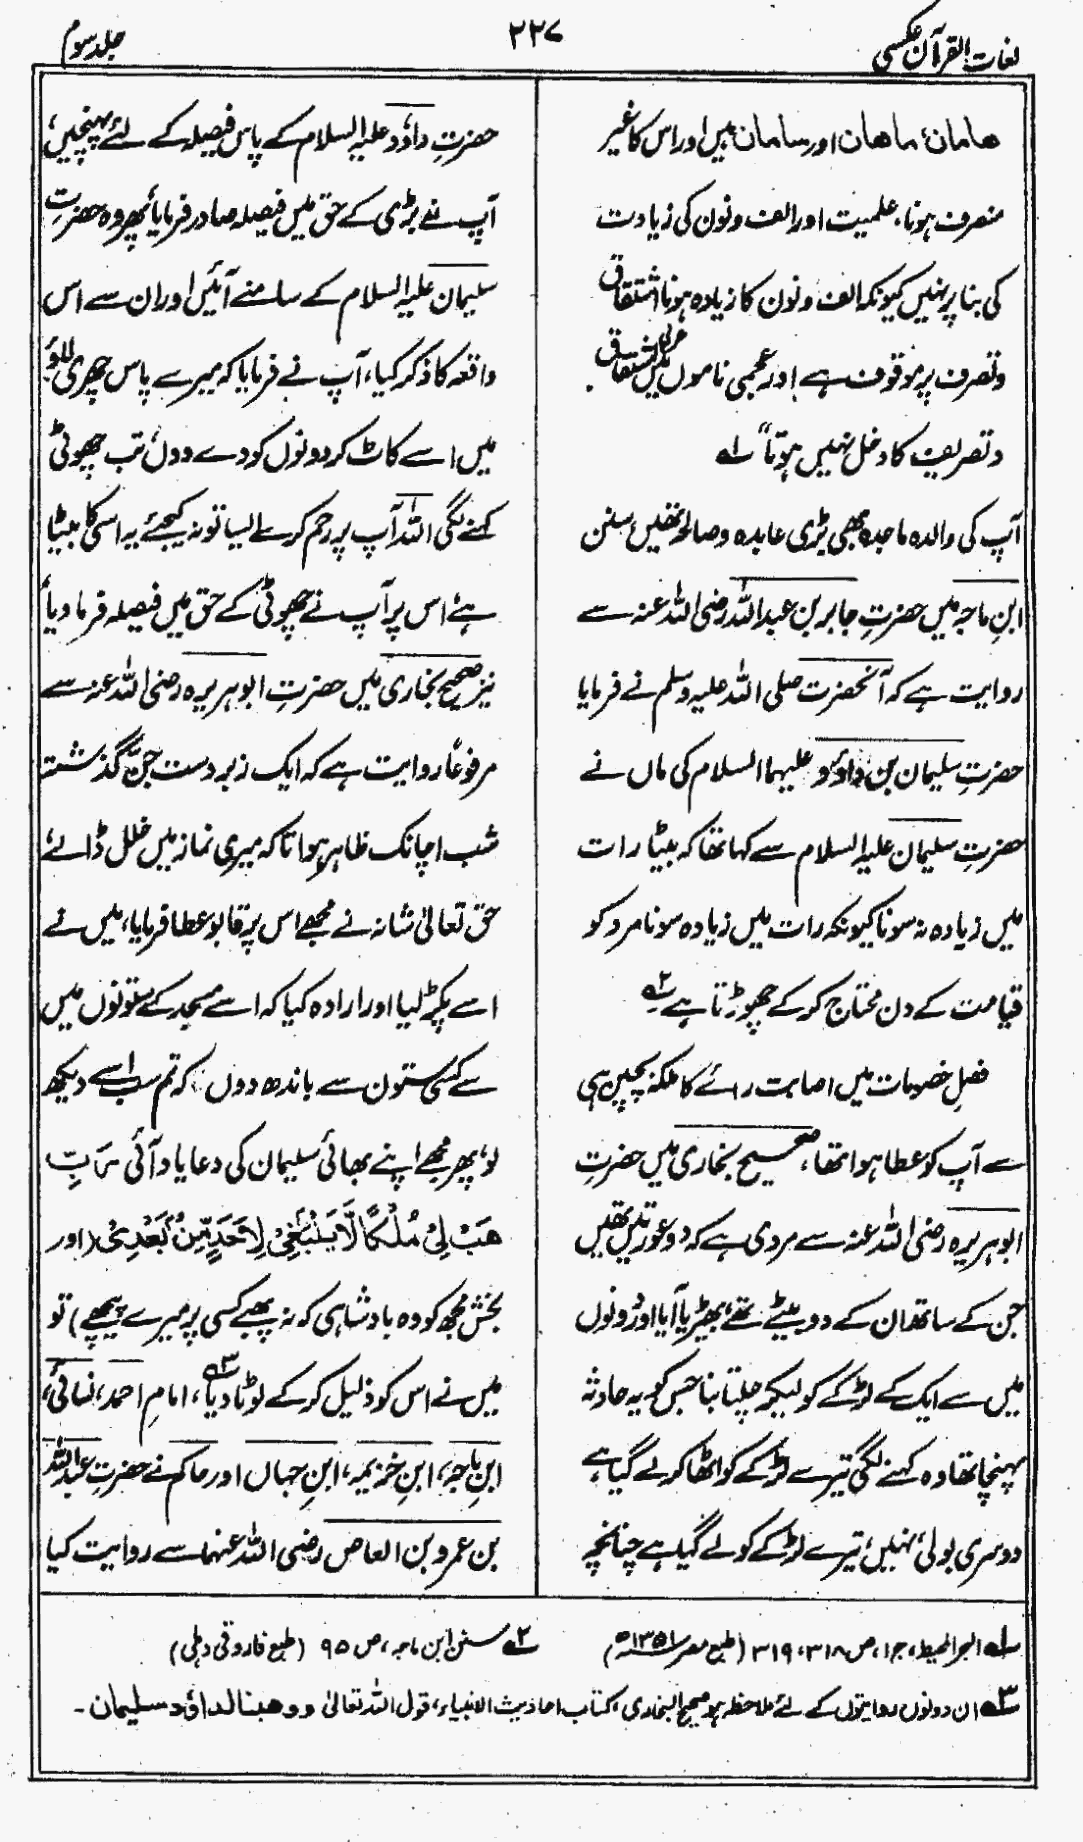 لغات القرآن عکسی
۲۲۷
جلد سوم
ھامان، ماھان اور سامان ہیں اور اس کا غیر
منصرف ہونا، علمیت اور الف و نون کی زیادت
کی بنا پر نہیں کیونکہ الف و نون کا زیادہ ہونا اشتقاق
و تصرف پر موقوف ہے اور عجمی ناموں میں اشتقاق
و تصریف کا دخل نہیں ہوتا" لہ
آپ کی والدہ ماجدہ بھی بڑی عابدہ و صالحہ تھیں، سنن
ابنِ ماجہ میں حضرتِ جابر بن عبداللہ رضی اللہ عنہ سے
روایت ہے کہ آنحضرت صلی اللہ علیہ وسلم نے فرمایا
حضرتِ سلیمان بن داوٗد علیہما السلام کی ماں نے
حضرتِ سلیمان علیہ السلام سے کہا تھا کہ بیٹا رات
میں زیادہ نہ سونا کیونکہ رات میں زیادہ سونا مرد کو
قیامت کے دن محتاج کر کے چھوڑتا ہے ۲ہ
فصلِ خصومات میں اصابت رائے کا ملکہ بچپن ہی
سے آپ کو عطا ہوا تھا، صحیح بخاری میں حضرتِ
ابوہریرہ رضی اللہ عنہ سے مروی ہے کہ دو عورتیں تھیں
جن کے ساتھ ان کے دو بیٹے تھے، بھیڑیا آیا اور دونوں
میں سے ایک کے لڑکے کو لیکر چلتا بنا جس کو یہ حادثہ
پہنچا تھا وہ کہنے لگی تیرے لڑکے کو اٹھا کر لے گیا ہے
دوسری بولی، نہیں، تیرے لڑکے کو لے گیا ہے چنانچہ
حضرتِ داوٗد علیہ السلام کے پاس فیصلہ کے لئے پہنچیں،
آپ نے بڑی کے حق میں فیصلہ صادر فرمایا، پھر وہ حضرتِ
سلیمان علیہ السلام کے سامنے آئیں اور ان سے اس
واقعہ کا ذکر کیا، آپ نے فرمایا کہ میرے پاس چھری لاؤ
میں اسے کاٹ کر دونوں کو دے دوں، تب چھوٹی
کہنے لگی اللہ آپ پر رحم کرے ایسا تو نہ کیجئے یہ اسی کا بیٹا
ہے، اس پر آپ نے چھوٹی کے حق میں فیصلہ فرما دیا،
نیز صحیح بخاری میں حضرتِ ابوہریرہ رضی اللہ عنہ سے
مرفوعًا روایت ہے کہ ایک زبردست جنّ گذشتہ
شب اچانک ظاہر ہوا تاکہ میری نماز میں خلل ڈالے،
حق تعالیٰ شانہ نے مجھے اس پر قابو عطا فرمایا، میں نے
اسے پکڑ لیا اور ارادہ کیا کہ اسے مسجد کے ستونوں میں
سے کسی ستون سے باندھ دوں کہ تم سب اسے دیکھ
لو، پھر مجھے اپنے بھائی سلیمان کی دعا یاد آئی رَبِّ
هَبْ لِيْ مُلْكًا لَّا يَنْبَغِيْ لِاَحَدٍ مِّنْ بَعْدِيْ (اور
بخش مجھ کو وہ بادشاہی کہ نہ پھبے کسی پر میرے پیچھے) تو
میں نے اس کو ذلیل کر کے لوٹا دیا ۳ہ، امامِ احمد، نسائی،
ابنِ ماجہ، ابنِ خزیمہ، ابنِ حبان اور حاکم نے حضرتِ عبداللہ
بن عمرو بن العاص رضی اللہ عنہما سے روایت کیا
لہ البحر المحیط، ج۱، ص ۳۱۸، ۳۱۹ (طبع مصر ۱۳۵۱ھ) ۲ہ سنن ابن ماجہ، ص ۹۵ (طبع فاروقی دہلی)
۳ہ ان دونوں روایتوں کے لئے ملاحظہ ہو صحیح البخاری، کتاب احادیث الانبیاء، قول اللہ تعالیٰ ووھبنا لداوٗد سلیمان۔